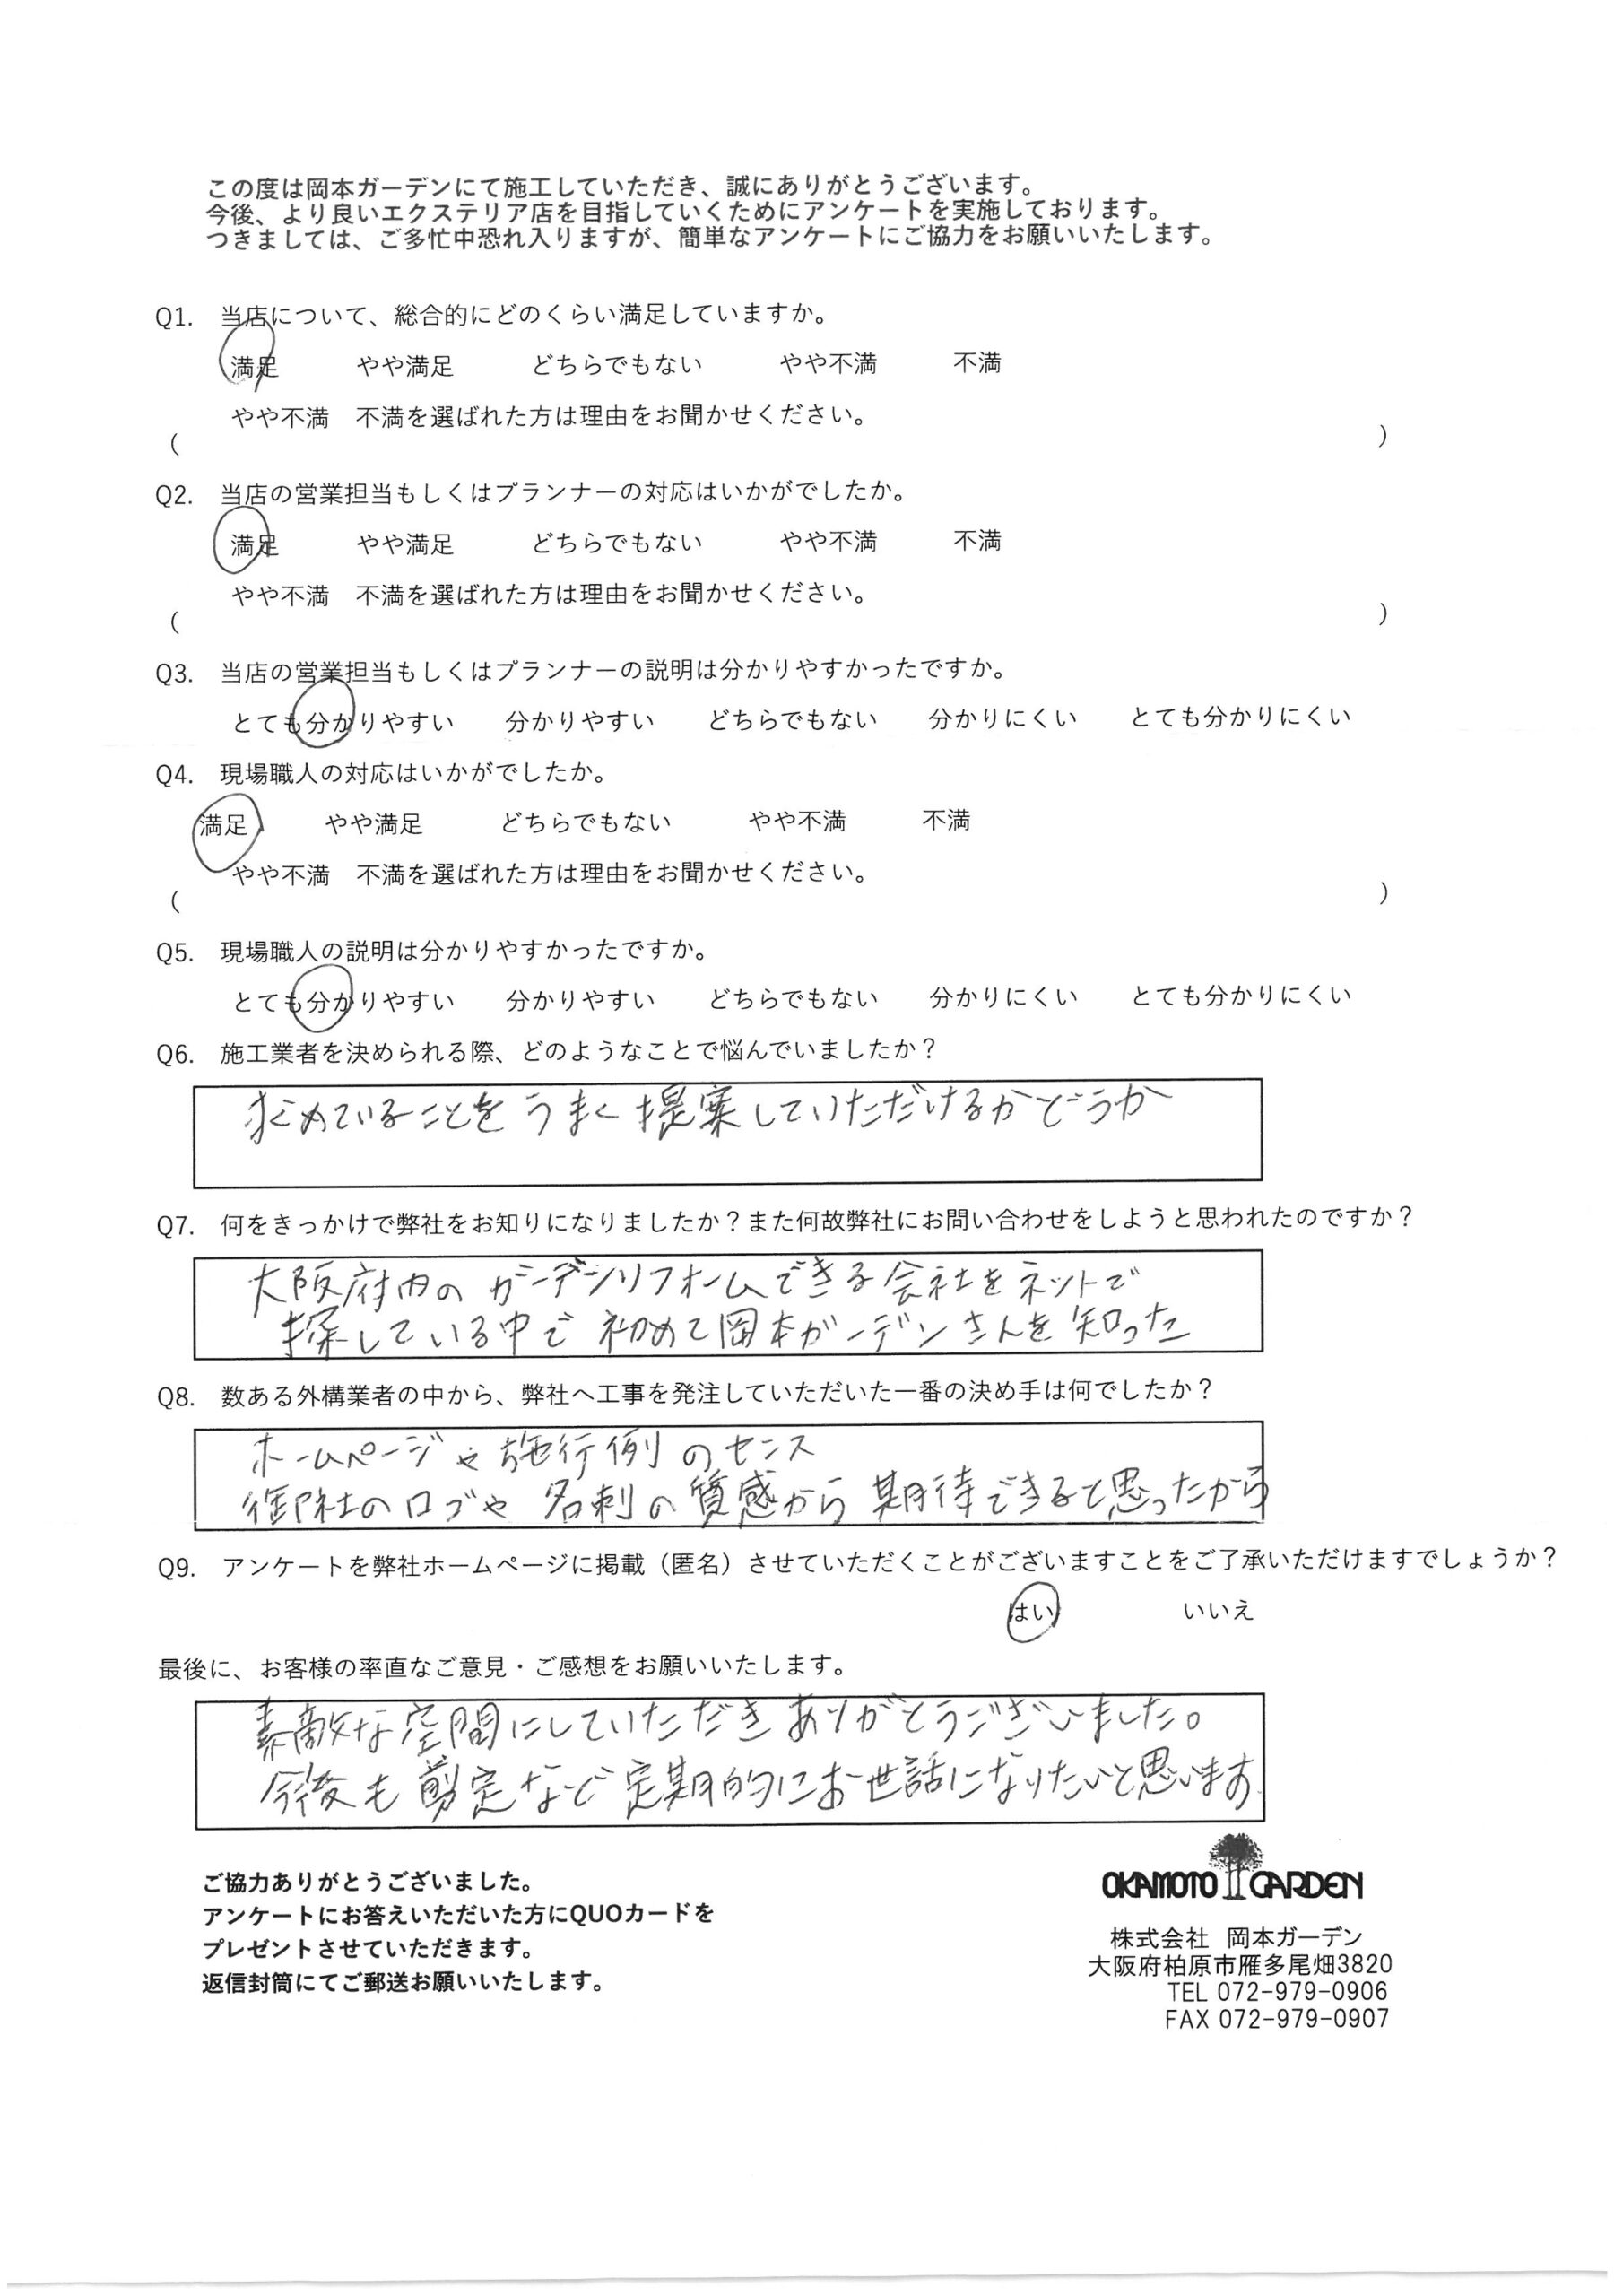 この度は岡本ガーデンにて施工していただき、誠にありがとうございます。
今後、より良いエクステリア店を目指していくためにアンケートを実施しております。
つきましては、ご多忙中恐れ入りますが、簡単なアンケートにご協力をお願いいたします。
Q1. 当店について、総合的にどのくらい満足していますか。
満足 やや満足 どちらでもない やや不満 不満
やや不満 不満を選ばれた方は理由をお聞かせください。
( )
Q2. 当店の営業担当もしくはプランナーの対応はいかがでしたか。
満足 やや満足 どちらでもない やや不満 不満
やや不満 不満を選ばれた方は理由をお聞かせください。
( )
Q3. 当店の営業担当もしくはプランナーの説明は分かりやすかったですか。
とても分かりやすい 分かりやすい どちらでもない 分かりにくい とても分かりにくい
Q4. 現場職人の対応はいかがでしたか。
満足 やや満足 どちらでもない やや不満 不満
やや不満 不満を選ばれた方は理由をお聞かせください。
( )
Q5. 現場職人の説明は分かりやすかったですか。
とても分かりやすい 分かりやすい どちらでもない 分かりにくい とても分かりにくい
Q6. 施工業者を決められる際、どのようなことで悩んでいましたか？
求めていることをうまく提案していただけるかどうか
Q7. 何をきっかけで弊社をお知りになりましたか？また何故弊社にお問い合わせをしようと思われたのですか？
大阪府内のガーデンリフォームできる会社をネットで
探している中で初めて岡本ガーデンさんを知った
Q8. 数ある外構業者の中から、弊社へ工事を発注していただいた一番の決め手は何でしたか？
ホームページや施行例のセンス
御社のロゴや名刺の質感から期待できると思ったから
Q9. アンケートを弊社ホームページに掲載（匿名）させていただくことがございますことをご了承いただけますでしょうか？
はい いいえ
最後に、お客様の率直なご意見・ご感想をお願いいたします。
素敵な空間にしていただきありがとうございました。
今後も剪定など定期的にお世話になりたいと思います
ご協力ありがとうございました。
アンケートにお答えいただいた方にQUOカードを
プレゼントさせていただきます。
返信封筒にてご郵送お願いいたします。
OKAMOTO GARDEN
株式会社 岡本ガーデン
大阪府柏原市雁多尾畑3820
TEL 072-979-0906
FAX 072-979-0907